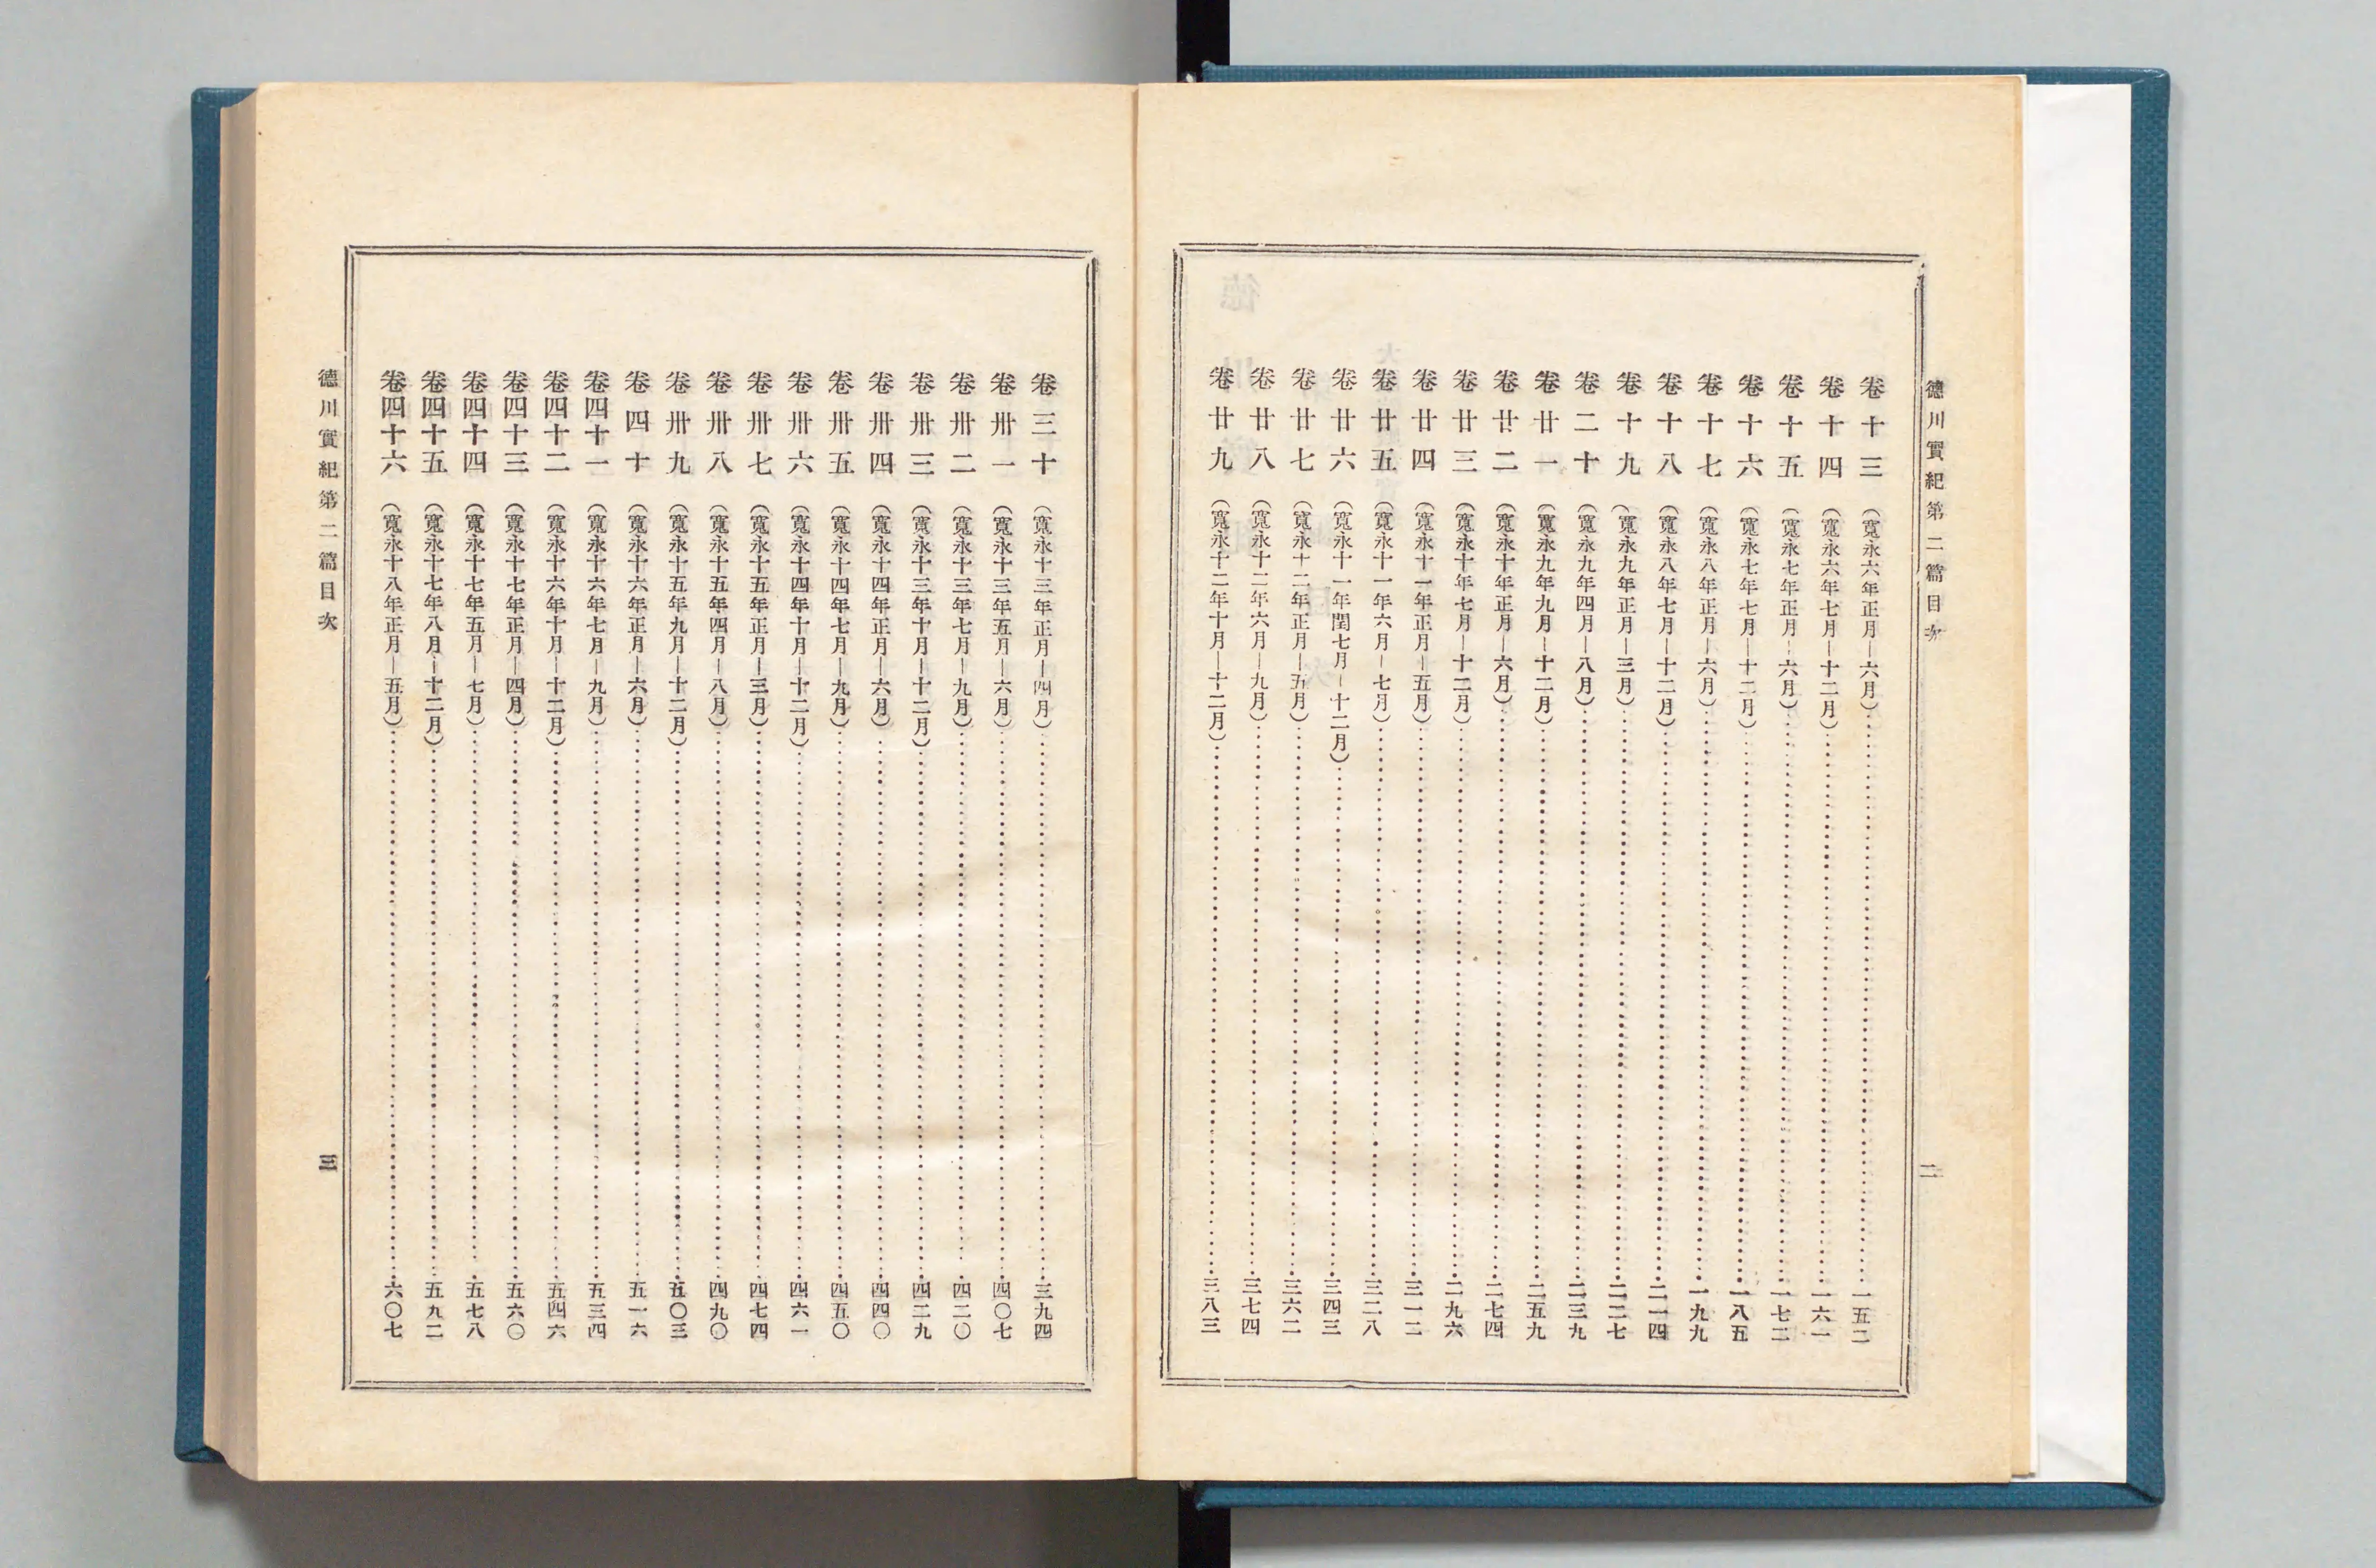 德川實紀第二篇目次
二
卷十三(寬永六年正月—六月)…………一五二
卷十四(寬永六年七月—十二月)…………一六一
卷十五(寬永七年正月—六月)…………一七二
卷十六(寬永七年七月—十二月)…………一八五
卷十七(寬永八年正月—六月)…………一九九
卷十八(寬永八年七月—十二月)…………二一四
卷十九(寬永九年正月—三月)…………二二七
卷二十(寬永九年四月—八月)…………二三九
卷廿一(寬永九年九月—十二月)…………二五九
卷廿二(寬永十年正月—六月)…………二七四
卷廿三(寬永十年七月—十二月)…………二九六
卷廿四(寬永十一年正月—五月)…………三一二
卷廿五(寬永十一年六月—七月)…………三二八
卷廿六(寬永十一年閏七月—十二月)…………三四三
卷廿七(寬永十二年正月—五月)…………三六二
卷廿八(寬永十二年六月—九月)…………三七四
卷廿九(寬永十二年十月—十二月)…………三八三
卷三十(寬永十三年正月—四月)…………三九四
卷卅一(寬永十三年五月—六月)…………四〇七
卷卅二(寬永十三年七月—九月)…………四二〇
卷卅三(寬永十三年十月—十二月)…………四二九
卷卅四(寬永十四年正月—六月)…………四四〇
卷卅五(寬永十四年七月—九月)…………四五〇
卷卅六(寬永十四年十月—十二月)…………四六一
卷卅七(寬永十五年正月—三月)…………四七四
卷卅八(寬永十五年四月—八月)…………四九〇
卷卅九(寬永十五年九月—十二月)…………五〇三
卷四十(寬永十六年正月—六月)…………五一六
卷四十一(寬永十六年七月—九月)…………五三四
卷四十二(寬永十六年十月—十二月)…………五四六
卷四十三(寬永十七年正月—四月)…………五六〇
卷四十四(寬永十七年五月—七月)…………五七八
卷四十五(寬永十七年八月—十二月)…………五九二
卷四十六(寬永十八年正月—五月)…………六〇七
德川實紀第二篇目次
三